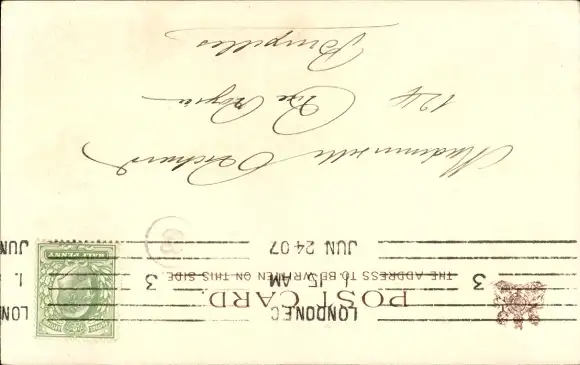 POST CARD.
THE ADDRESS TO BE WRITTEN ON THIS SIDE.
LONDON E.C.
3 1. 15 AM 3 1.
JUN 24 07 JUN
HALF PENNY
Mademoiselle
124 Rue
Bruxelles